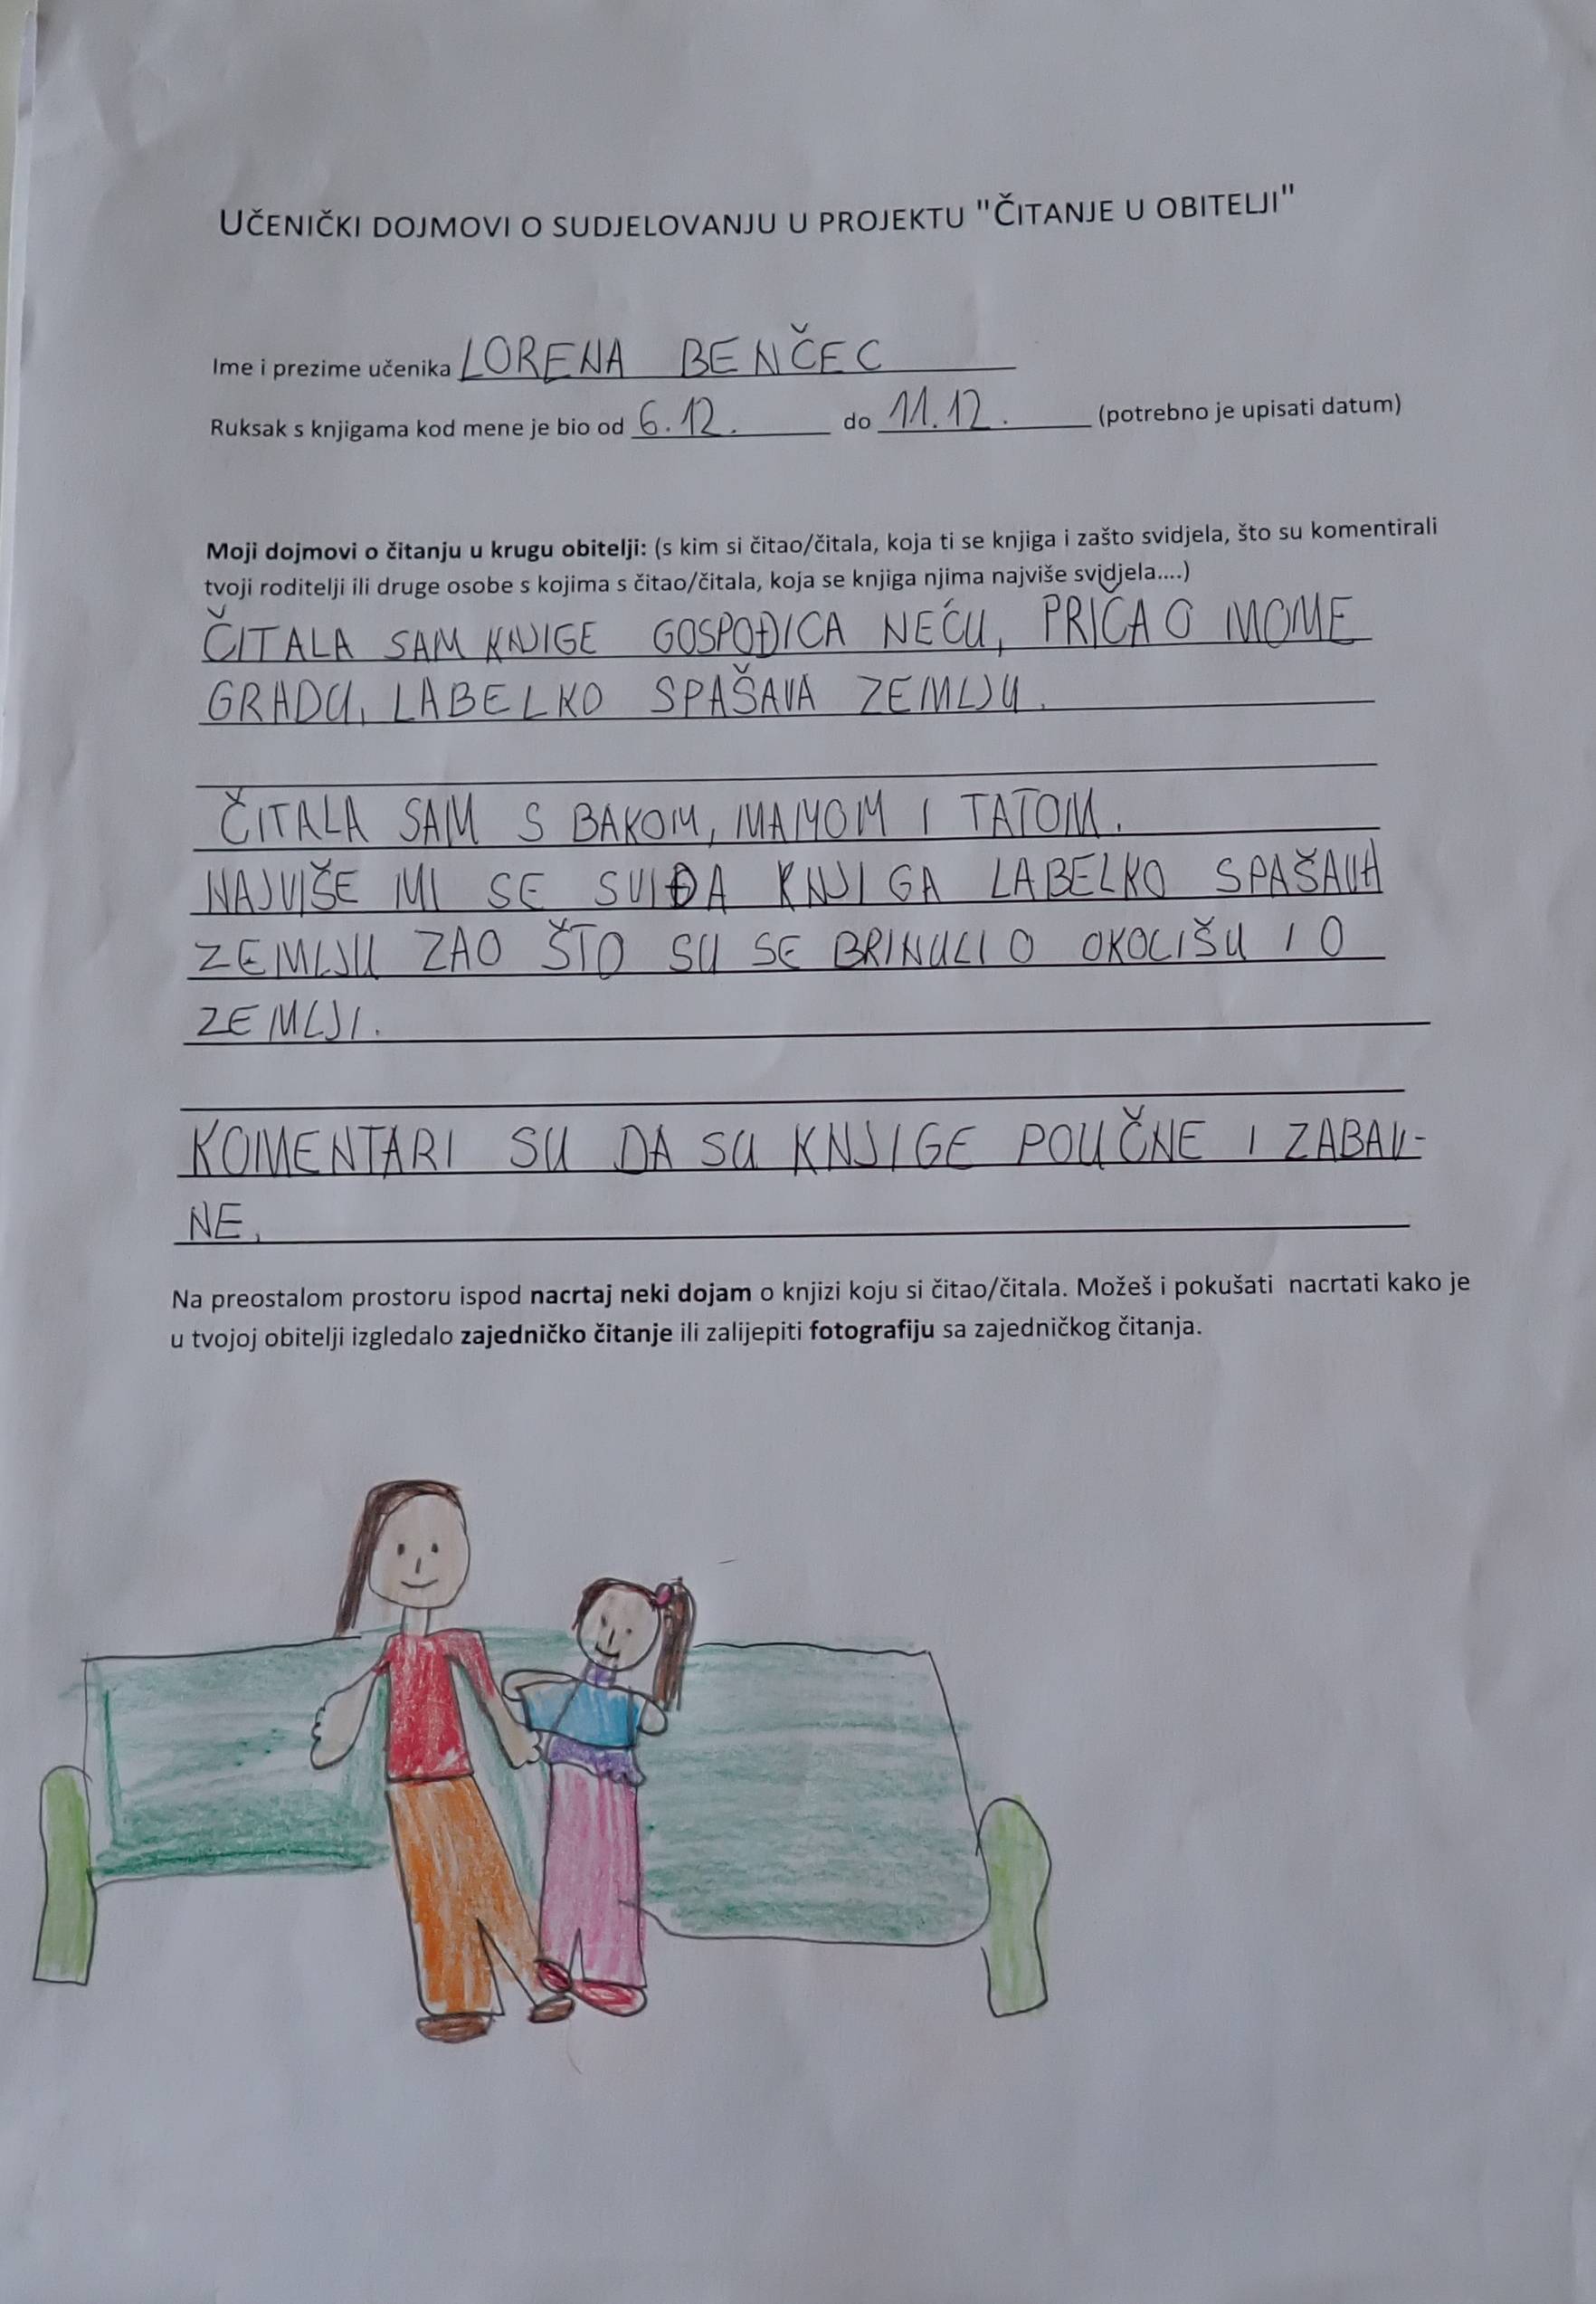 UČENIČKI DOJMOVI O SUDJELOVANJU U PROJEKTU "ČITANJE U OBITELJI"
Ime i prezime učenika LORENA BENČEC
Ruksak s knjigama kod mene je bio od 6.12. do 11.12. (potrebno je upisati datum)
Moji dojmovi o čitanju u krugu obitelji: (s kim si čitao/čitala, koja ti se knjiga i zašto svidjela, što su komentirali
tvoji roditelji ili druge osobe s kojima s čitao/čitala, koja se knjiga njima najviše svidjela....)
ČITALA SAM KNJIGE GOSPOĐICA NEĆU, PRIČA O MOME
GRADU, LABELKO SPAŠAVA ZEMLJU.
ČITALA SAM S BAKOM, MAMOM I TATOM.
NAJVIŠE MI SE SVIĐA KNJIGA LABELKO SPAŠAVA
ZEMLJU ZAO ŠTO SU SE BRINULI O OKOLIŠU I O
ZEMLJI.
KOMENTARI SU DA SU KNJIGE POUČNE I ZABAV-
NE.
Na preostalom prostoru ispod nacrtaj neki dojam o knjizi koju si čitao/čitala. Možeš i pokušati nacrtati kako je
u tvojoj obitelji izgledalo zajedničko čitanje ili zalijepiti fotografiju sa zajedničkog čitanja.